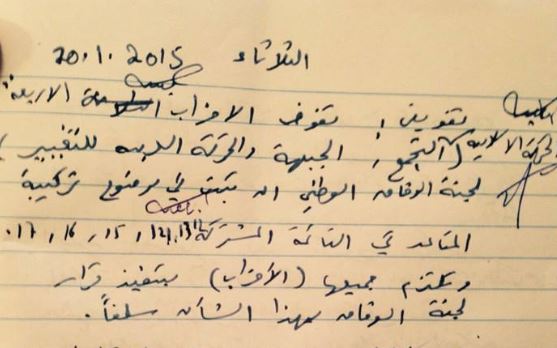 الثلاثاء 20.1.2015
تفويض: تفوض الاحزاب الاربعة:
الحركة الاسلامية، التجمع، الجبهة والحركة العربية للتغيير
لجنة الوفاق الوطني ان تبت في موضوع تركيبة
المقاعد في القائمة المشتركة 12، 13، 14، 15، 16، 17.
وتلتزم جميعها (الأحزاب) بتنفيذ قرار
لجنة الوفاق بهذا الشأن سلفاً.